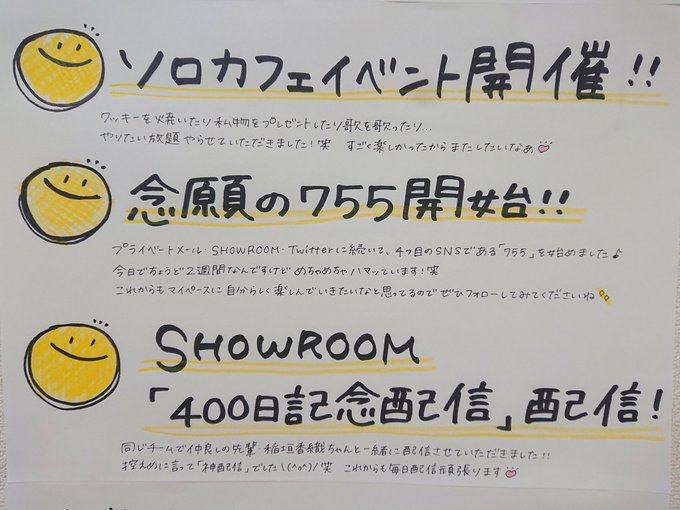 ソロカフェイベント開催!!
クッキーを焼いたり私物をプレゼントしたり歌を歌ったり...
やりたい放題やらせていただきました!笑 すごく楽しかったからまたしたいなぁ♡
念願の755開始!!
プライベートメール・SHOWROOM・Twitterに続いて、4つ目のSNSである「755」を始めました♪
今日でちょうど2週間なんですけどめちゃめちゃハマッています!笑
これからもマイペースに自分らしく楽しんでいきたいなと思ってるのでぜひフォローしてみてくださいね
SHOWROOM
「400日記念配信」配信!
同じチームで仲良しの先輩・稲垣香織ちゃんと一緒に配信させていただきました!!
控えめに言って「神配信」でした\(^o^)/笑 これからも毎日配信頑張ります♡